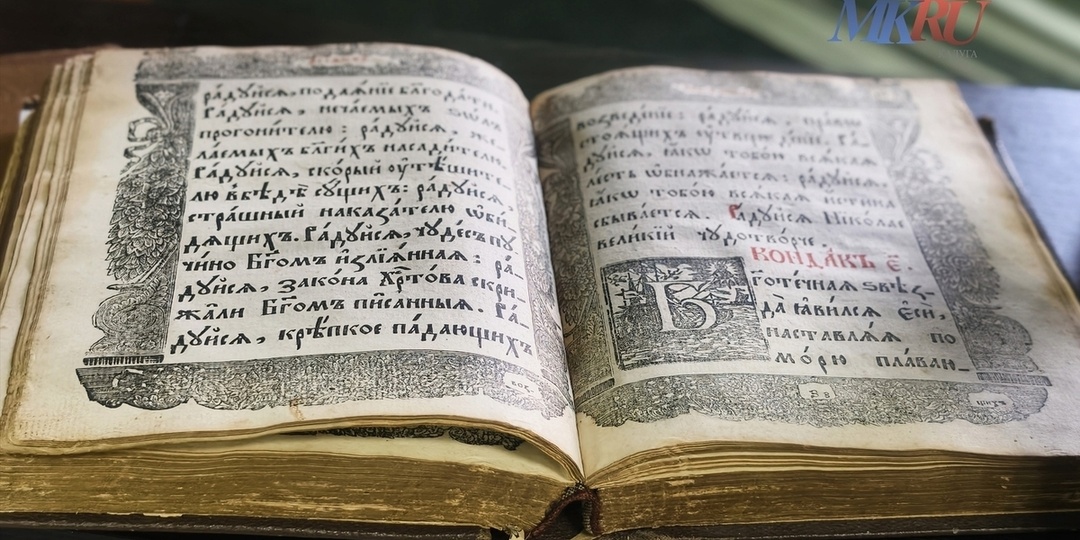 MKRU
ра́дꙋйсѧ, подаѧ́нїе бл҃года́ти.
Ра́дꙋйсѧ, неча́емыхъ ѕѡ́лъ
прогони́телю : ра́дꙋйсѧ, же-
ла́емыхъ бл҃ги́хъ насади́телю.
Ра́дꙋйсѧ, ско́рый ᲂу҆тѣ́шите-
лю въ бѣда́хъ сꙋ́щихъ : ра́дꙋйсѧ,
стра́шный наказа́телю ѡ҆би́-
дѧщихъ. Ра́дꙋйсѧ, чꙋде́съ пꙋ-
чи́но Бг҃омъ и҆злїѧ́ннаѧ : ра́-
дꙋйсѧ, зако́на Хрⷭ҇то́ва скри-
жа́ли Бг҃омъ пи́санныѧ. Ра́-
дꙋйсѧ, крѣ́пкое па́дающихъ
возведе́нїе : ра́дꙋйсѧ, пра́вѡ
стоѧ́щихъ ᲂу҆твержде́нїе. Ра́-
дꙋйсѧ, ꙗ҆́кѡ тобо́ю всѧ́каѧ
ле́сть ѡ҆бнажа́етсѧ : ра́дꙋйсѧ,
ꙗ҆́кѡ тобо́ю всѧ́каѧ и҆́стина
сбыва́етсѧ. Ра́дꙋйсѧ Нико́лае
вели́кїй чꙋдотво́рче.
Конда́къ є҃.
Б҃готе́чнаѧ ѕвѣз-
да̀ ꙗ҆ви́лсѧ є҆сѝ,
наставлѧ́ѧ по
мо́рю пла́ваю-
щихъ